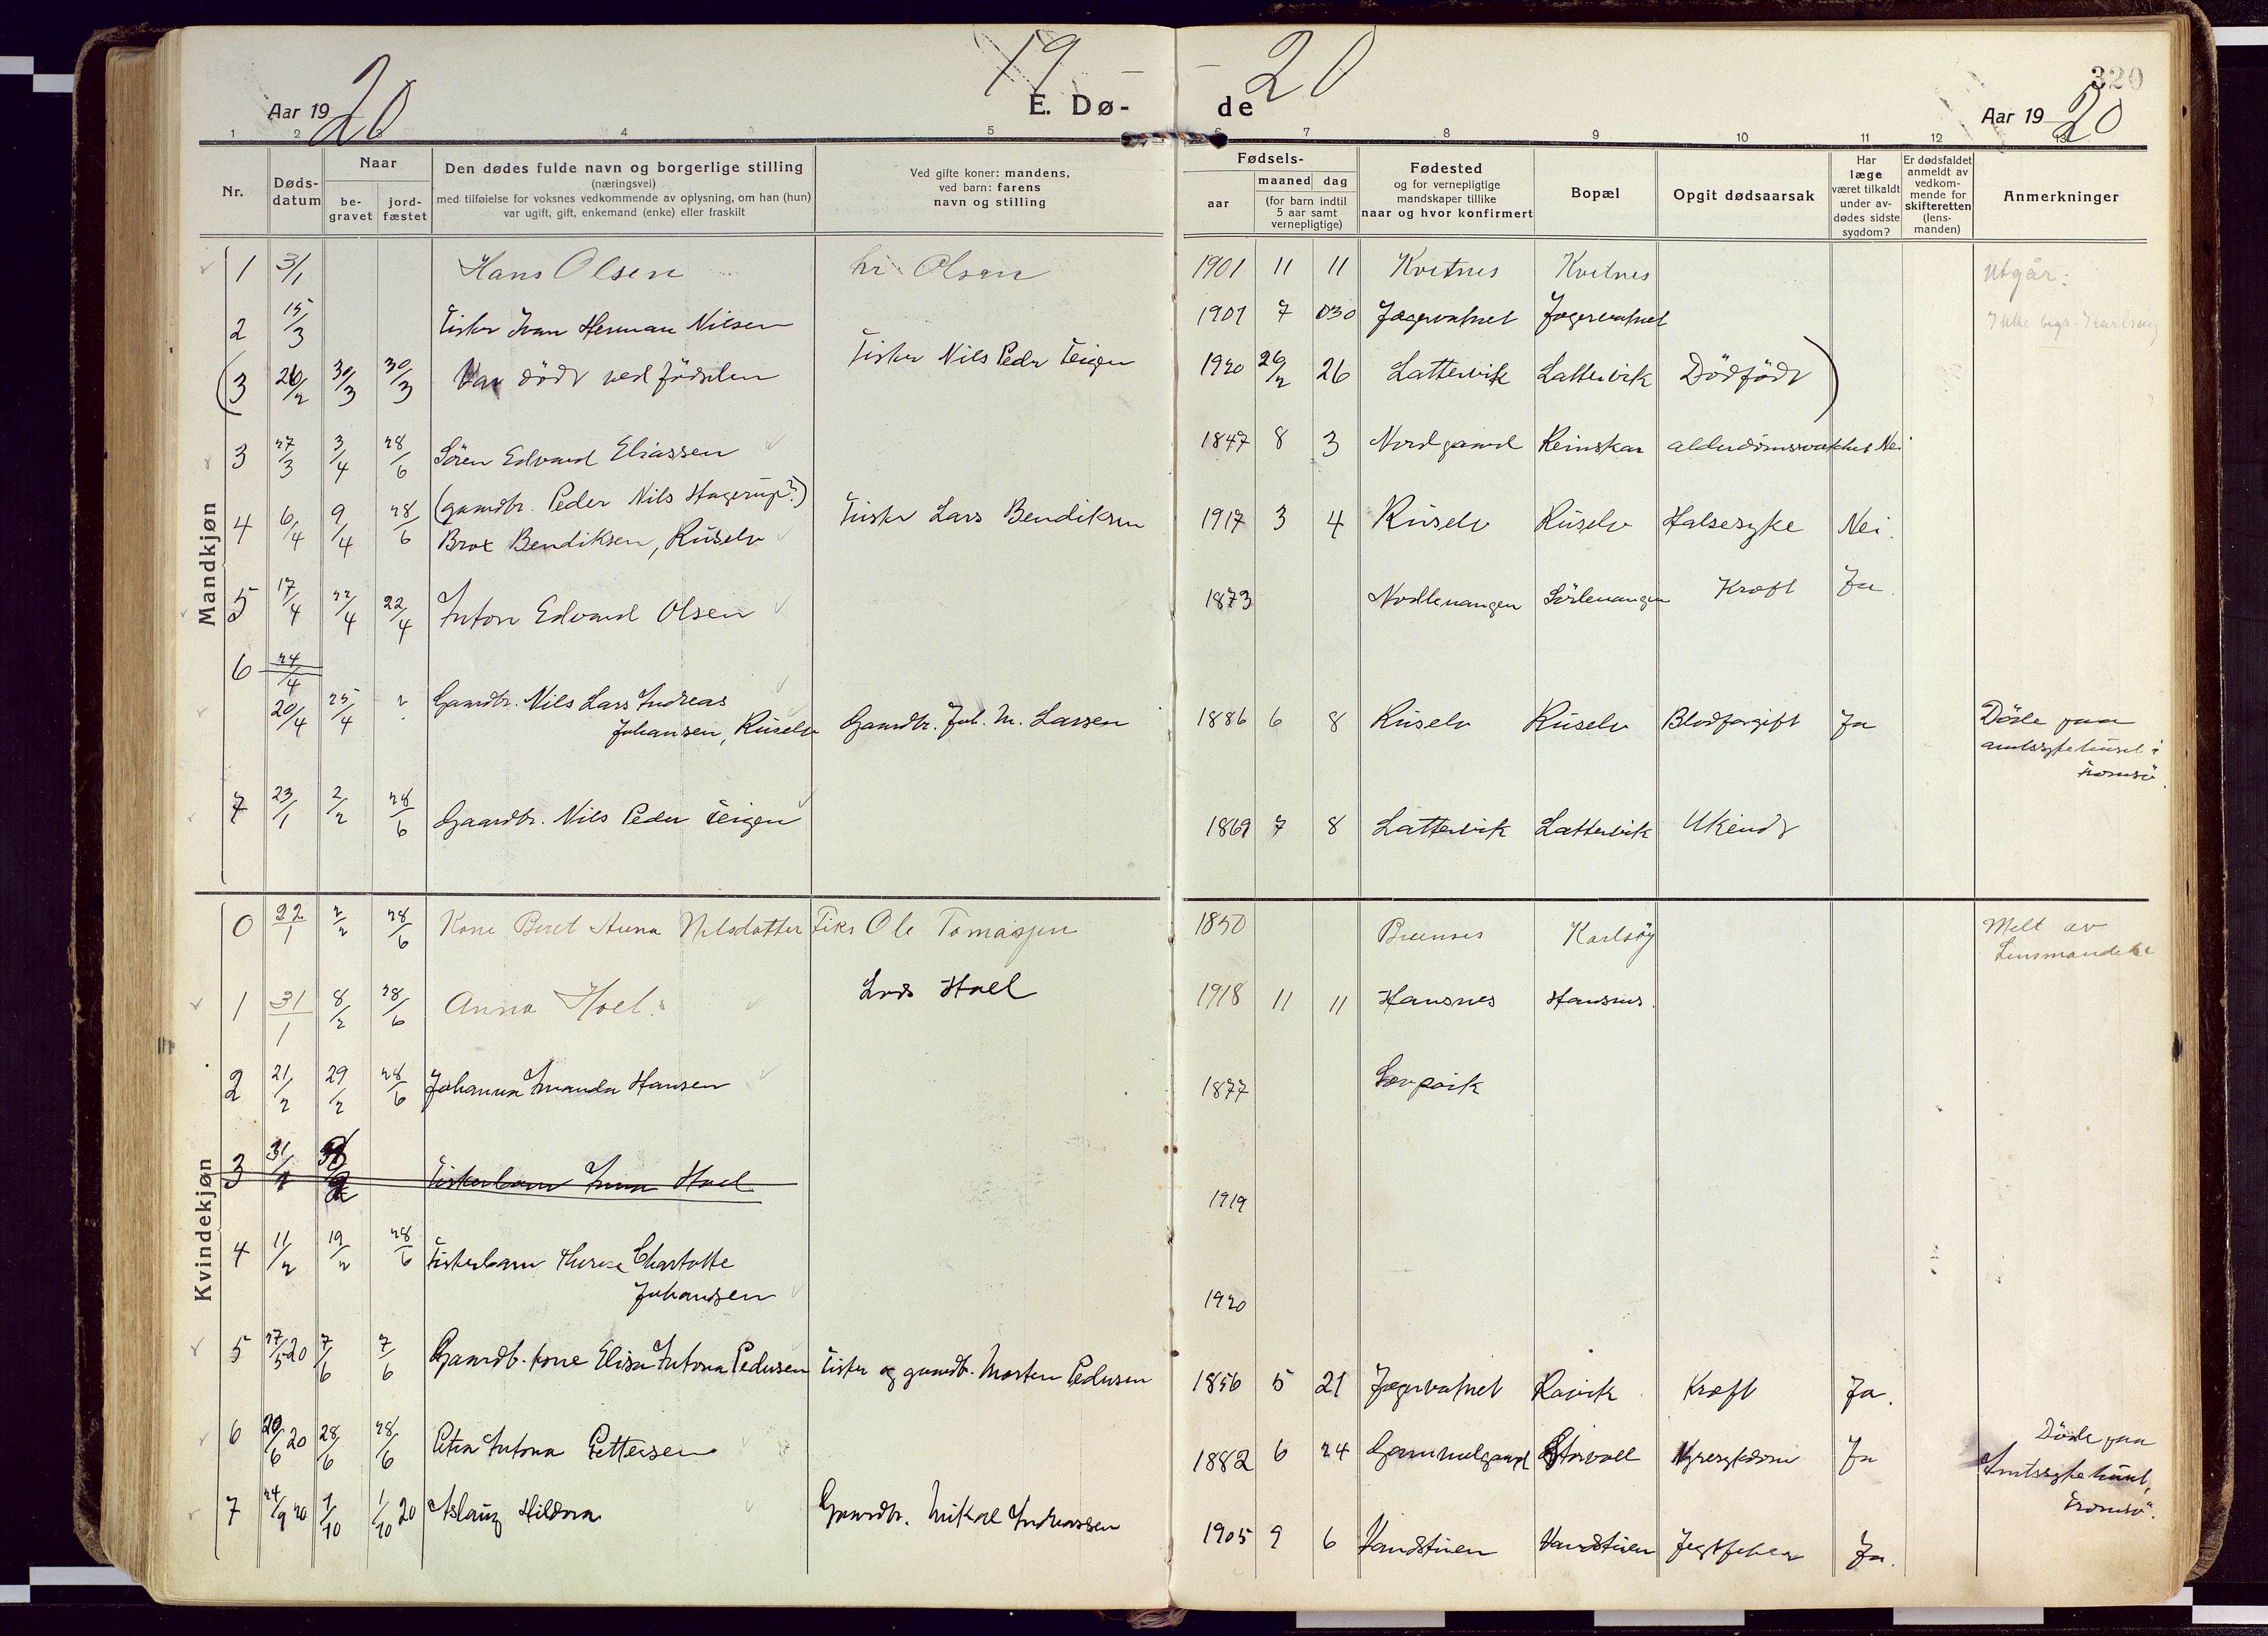 19 — — 20
320
Aar 1920
E. Dø- de
Aar 1920
1 2 3 4 5 6 7 8 9 10 11 12 13
Nr.
Døds-
datum
Naar
be-
gravet
jord-
fæstet
Den dødes fulde navn og borgerlige stilling
(næringsvei)
med tilføielse for voksnes vedkommende av oplysning, om han (hun)
var ugift, gift, enkemand (enke) eller fraskilt
Ved gifte koner: mandens,
ved barn: farens
navn og stilling
Fødsels-
aar
maaned dag
(for barn indtil
5 aar samt
vernepligtige)
Fødested
og for vernepligtige
mandskaper tillike
naar og hvor konfirmert
Bopæl
Opgit dødsaarsak
Har
læge
været tilkaldt
under av-
dødes sidste
sygdom?
Er dødsfaldet
anmeldt av
vedkom-
mende for
skifteretten
(lens-
manden)
Anmerkninger
Mandkjøn
1 3/1 Hans Olsen Olsen 1901 11 11 Kvitnes Kvitnes Utgår.
2 15/3 Fisker Ivan Herman Nilsen 1901 7 30 Jægervatnet Jægervatnet Ikke begr. Karlsøy
(3 26/2 30/3 30/3 Var født ved fødselen Fisker Nils Peder Teigen 1920 26/2 26 Lattervik Lattervik Dødfødt)
3 27/3 3/4 28/6 Søren Edvard Eliassen 1847 8 3 Nordgaard Reinskar alderdomssvakhet Nei
(gaardbr. Peder Nils Hagerup?)
4 6/4 9/4 28/6 Brox Bendiksen, Ruselv Fisker Lars Bendiksen 1917 3 4 Ruselv Ruselv Halsesyke Nei.
5 17/4 22/4 22/4 Anton Edvard Olsen 1873 Nordlenangen Sørlenangen Kræft Ja.
6 24/4
20/4 25/4 Gaardbr. Nils Lars Andreas
Johansen, Ruselv Gaardbr. Joh. M. Larsen 1886 6 8 Ruselv Ruselv Blodforgift Ja Døde paa
amtssykehuset i
Tromsø.
7 23/1 2/2 28/6 Gaardbr. Nils Peder Teigen 1869 7 8 Lattervik Lattervik Ukendt
Kvindekjøn
0 22/1 2/2 28/6 Kone Beret Anna Nilsdatter Fisk. Ole Tomassen 1850 Karlsøy Melt av
Lensmanden
1 31/1 8/2 28/6 Anna Hoel. Hoel 1918 11 11 Hansnes Hansnes.
2 21/2 29/2 28/6 Johanna Amanda Hansen 1877
3 31/1 Fiskerbarn Anna Hoel 1919
4 11/2 19/2 28/6 Fiskerbarn Therese Charlotte
Johansen 1920
5 27/5 20 7/6 7/6 Gaardb. kone Elisa Antona Pedersen Fisker og gaardb. Morten Pedersen 1856 5 21 Jægervatnet Ravik Kræft Ja.
6 20/6 20 28/6 28/6 Petra Antona Pettersen 1882 6 24 Gammelgaard Storvoll Nyresykdom Ja Døde paa
Amtssykehuset,
Tromsø.
7 24/9 20 1/10 1/10 20 Aslaug Hildora Gaardbr. Mikal Andreassen 1905 9 6 Vandstuen Vandstuen Ja.